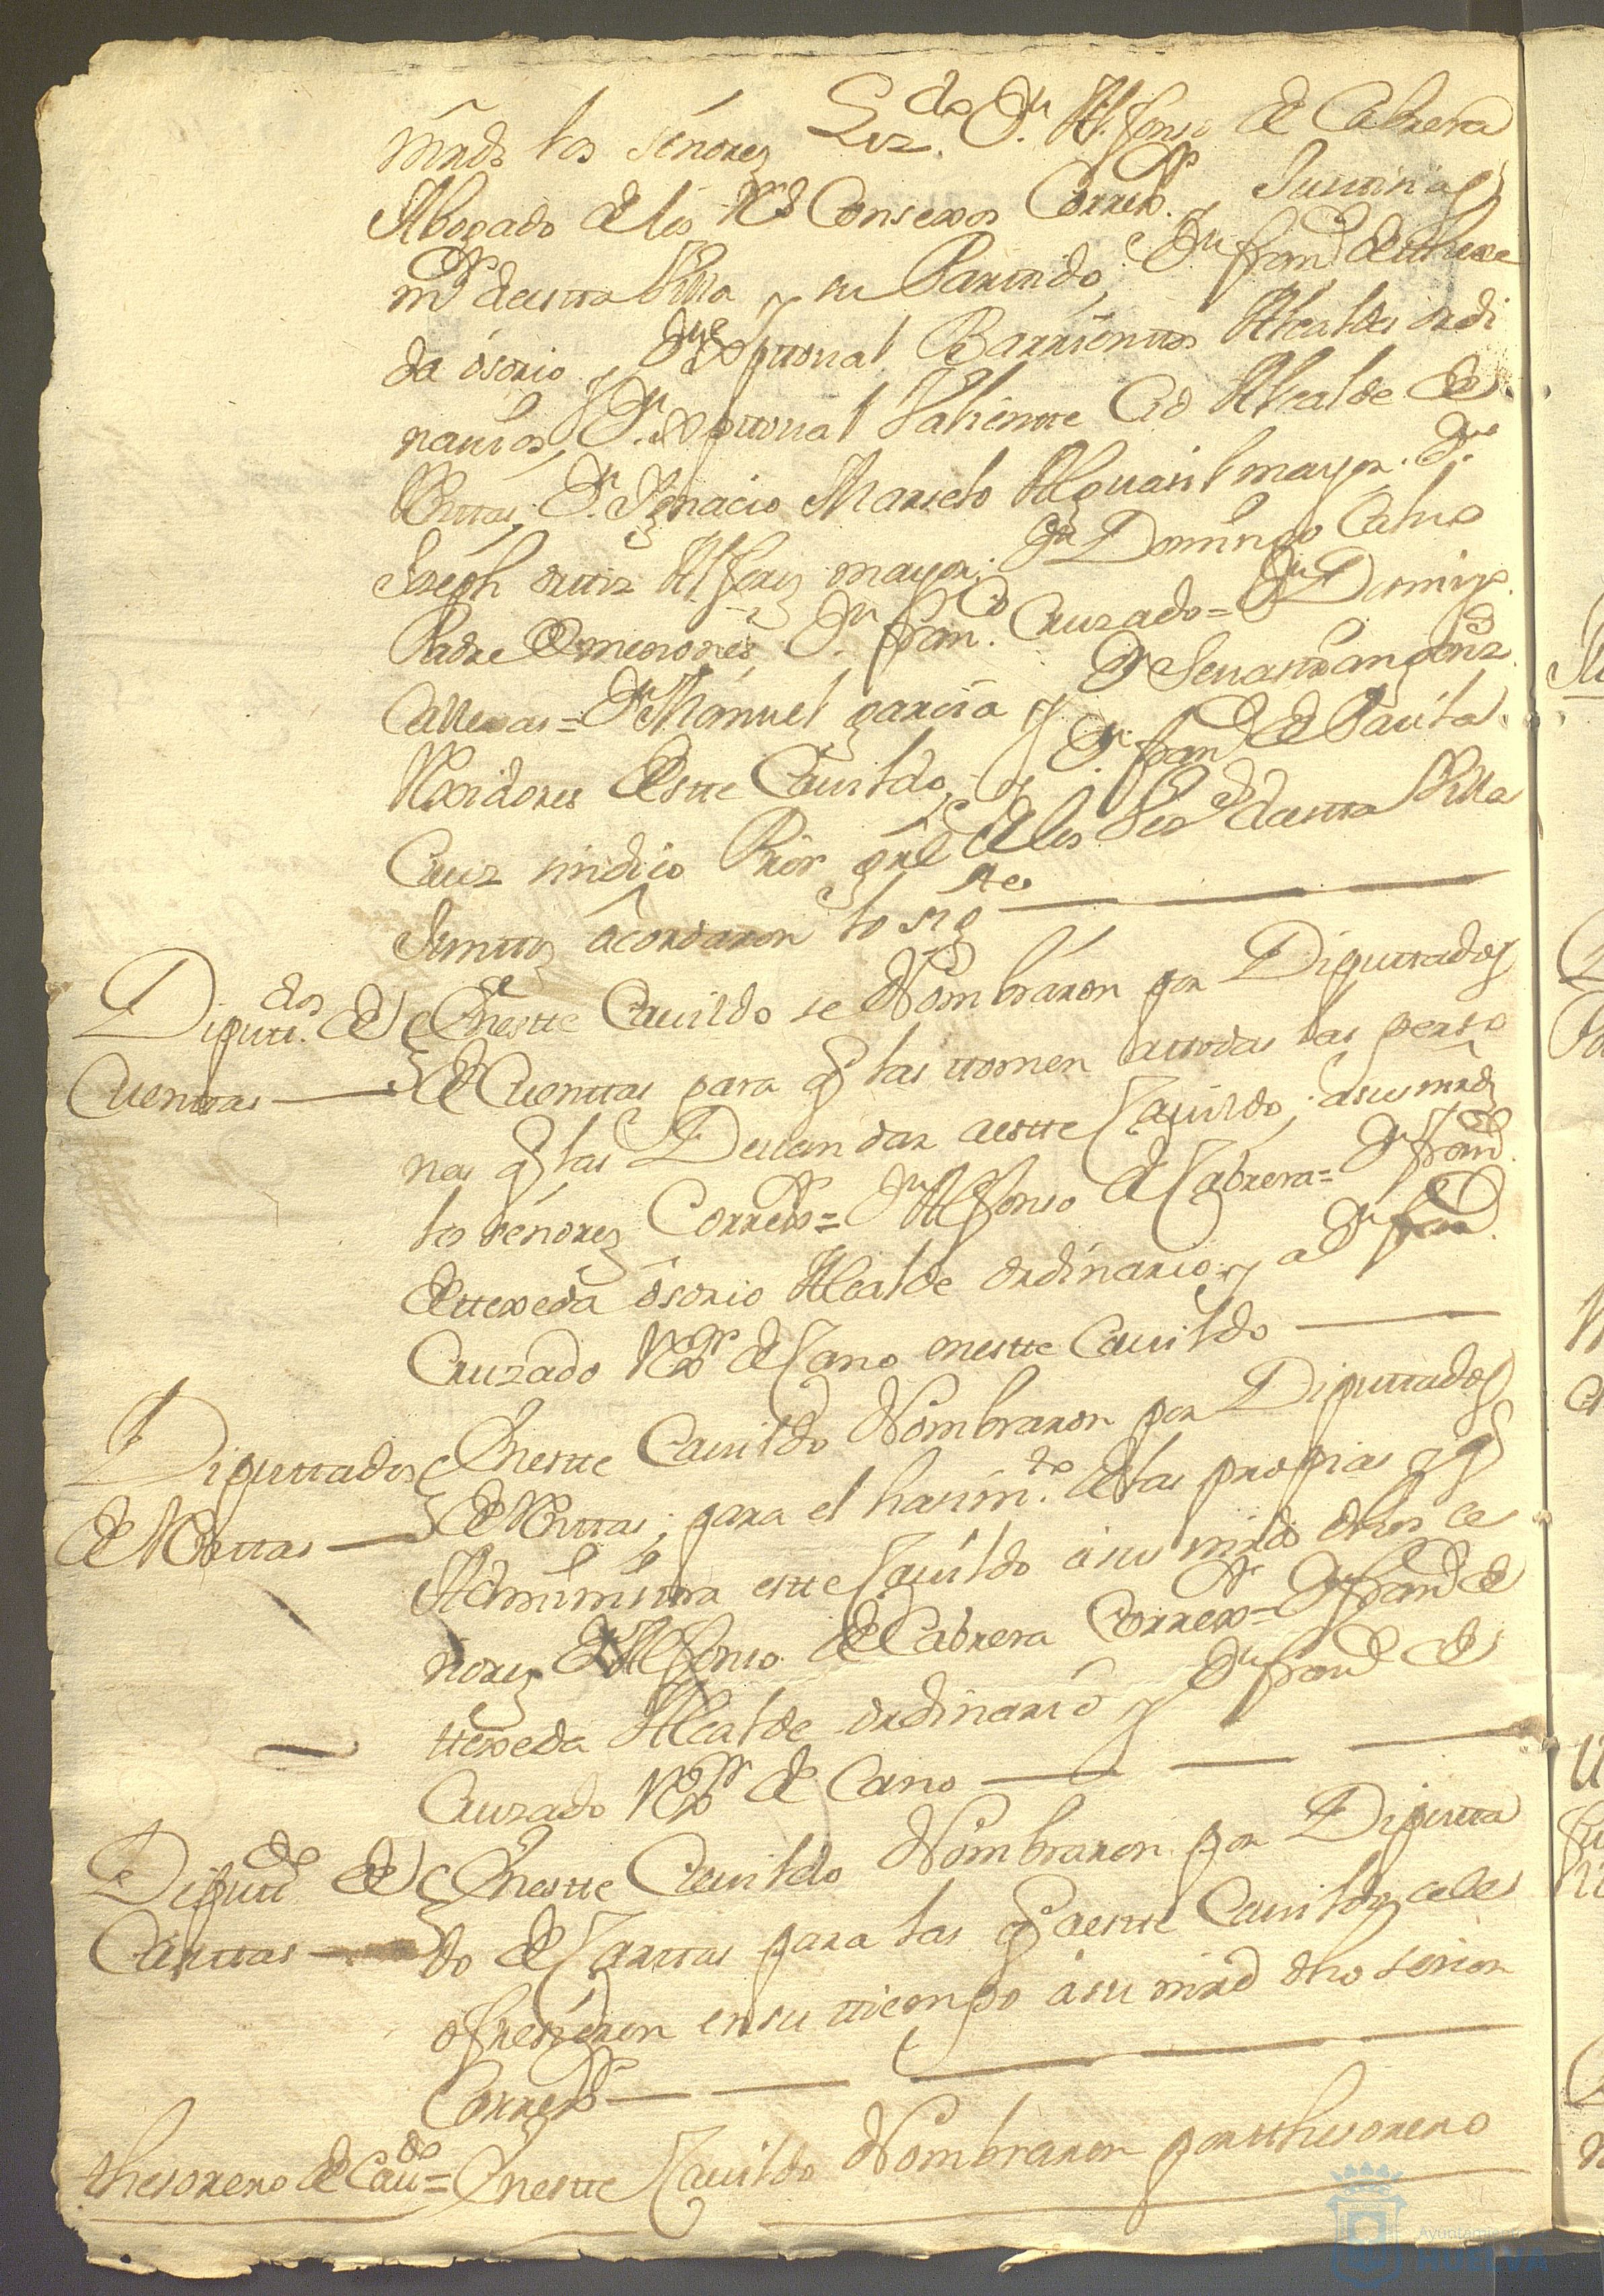 mrds los señores Lizdo Dn Alfonso de Cabrera
Abogado de los Rs Consexos Correxr y Justizia
mr de estta Villa y su Parttido, Dn franco de thexe
da osorio y Dn Xpttoval Barrientos Alcaldes ordi
narios, Dn Xpttoval Valientte Cid Alcalde de
Rentas, Dn Ygnacio Marselo Alguasil mayor. Dn
Joseph ortiz Alferez mayor. Dn Domingo Calvo
Padre de menores, Dn franco Cruzado = Dn Domingo
Callexas = Dn Manuel garcia y Dn Sevastian gonz
Rexidores de estte Cavildo, y Dn franco de Paula
Cruz sindico Prior gral de los Vezos de estta Villa
Junttos acordaron lo sigte
Diputtdos de
Cuenttas
En estte Cavildo se Nombraron por Diputtados
de Cuenttas para q las ttomen a ttodas las perso
nas q las Devan dar a estte Cavildo, a sus mrds
los señores Correxr = Dn Alfonso de Cabrera = Dn franco
de ttexeda osorio Alcalde ordinario, y a Dn franco
Cruzado Rexr de Cano en estte Cavildo
Diputtados
de Renttas
En estte Cavildo Nombraron por Diputtados
de Renttas, para el hasimto de las propias q
Administra estte Cavildo a sus mrds dhos se
ñores Dn Alfonso de Cabrera Correxr = Dn franco de
ttexeda Alcalde ordinario y Dn franco de
Cruzado Rexr de Cano
Diputtdo de
Carttas
En estte Cavildo Nombraron por Diputta
do de Carttas para las q a estte Cavildo se le
ofresieren en su ttiempo a su mrd dho señor
Correxr
thesorero de Cavdo =
En estte Cavildo Nombraron por tthesorero
Ayuntamiento
HUELVA